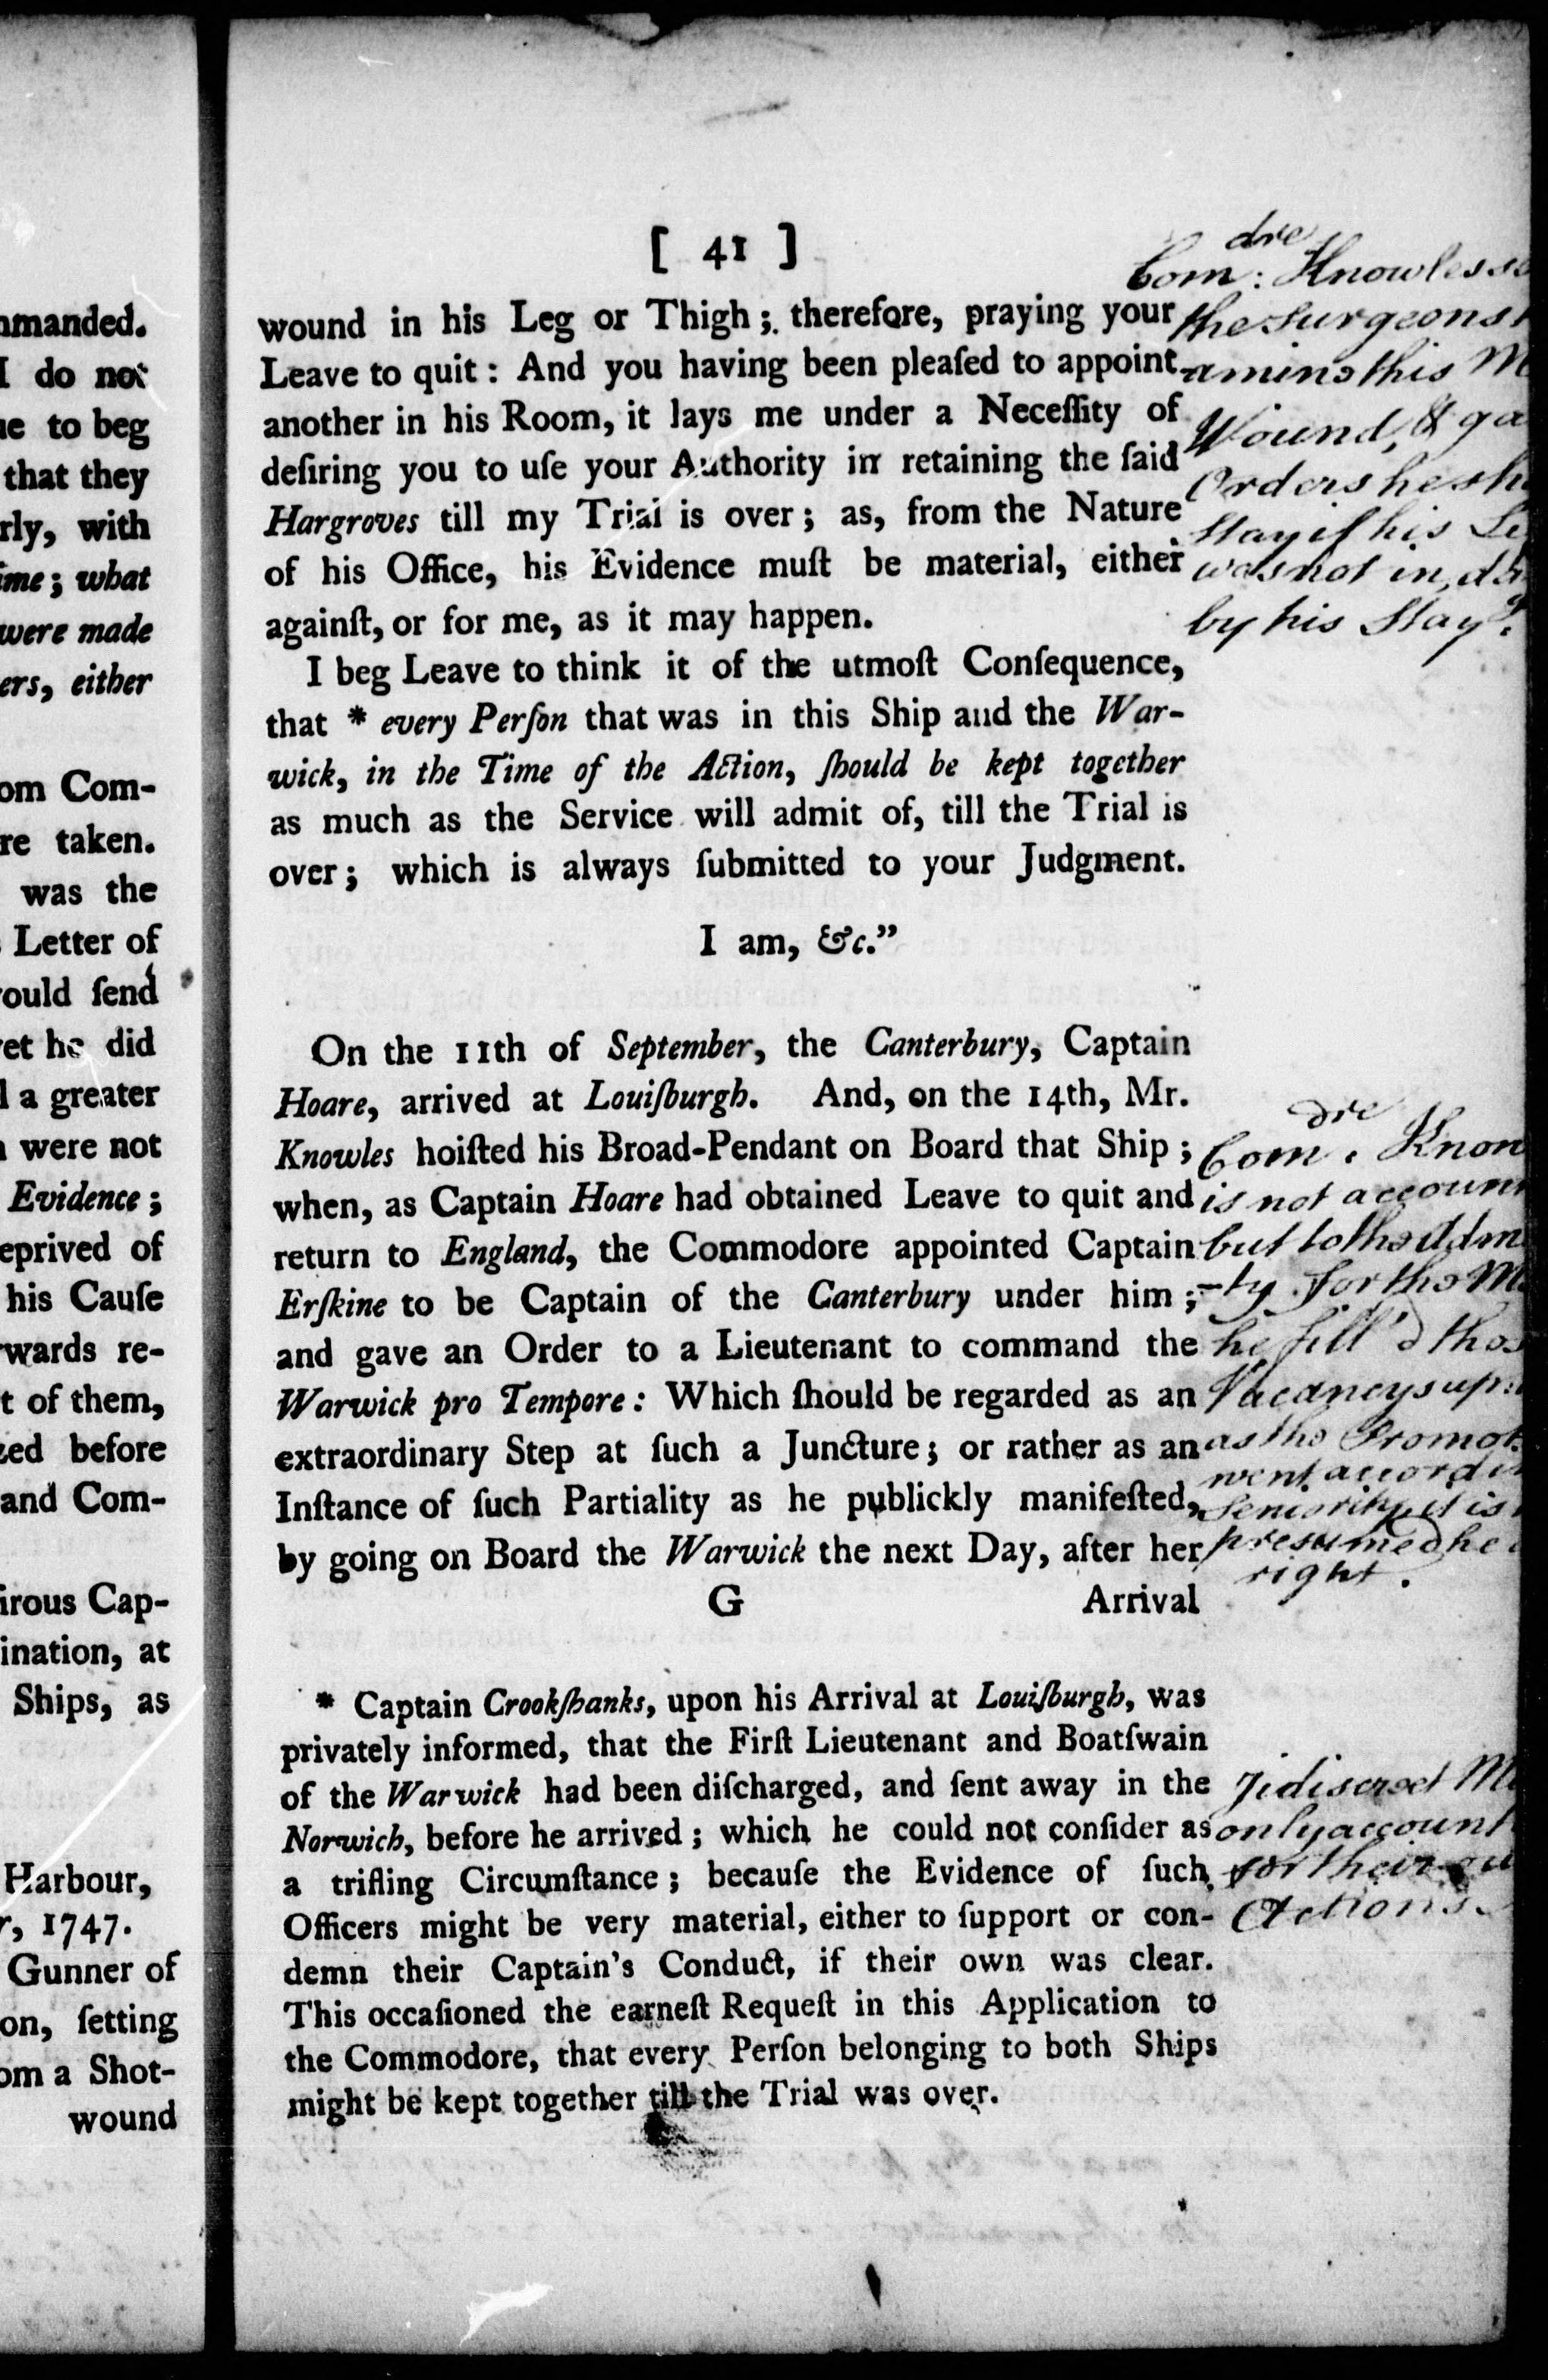 mmanded.
I do not
ue to beg
that they
rly, with
ime; what
were made
ers, either
om Com-
re taken.
was the
Letter of
ould ſend
et he did
l a greater
n were not
Evidence;
eprived of
his Cauſe
wards re-
t of them,
zed before
and Com-
irous Cap-
ination, at
Ships, as
Harbour,
r, 1747.
Gunner of
on, ſetting
om a Shot-
wound
[ 41 ]
wound in his Leg or Thigh; therefore, praying your
Leave to quit: And you having been pleaſed to appoint
another in his Room, it lays me under a Neceſſity of
deſiring you to uſe your Authority in retaining the ſaid
Hargroves till my Trial is over; as, from the Nature
of his Office, his Evidence muſt be material, either
againſt, or for me, as it may happen.
I beg Leave to think it of the utmoſt Conſequence,
that * every Perſon that was in this Ship and the War-
wick, in the Time of the Action, ſhould be kept together
as much as the Service will admit of, till the Trial is
over; which is always ſubmitted to your Judgment.
I am, &c."
On the 11th of September, the Canterbury, Captain
Hoare, arrived at Louiſburgh. And, on the 14th, Mr.
Knowles hoiſted his Broad-Pendant on Board that Ship;
when, as Captain Hoare had obtained Leave to quit and
return to England, the Commodore appointed Captain
Erſkine to be Captain of the Canterbury under him;
and gave an Order to a Lieutenant to command the
Warwick pro Tempore: Which ſhould be regarded as an
extraordinary Step at ſuch a Juncture; or rather as an
Inſtance of ſuch Partiality as he publickly manifeſted,
by going on Board the Warwick the next Day, after her
G Arrival
* Captain Crookſhanks, upon his Arrival at Louiſburgh, was
privately informed, that the Firſt Lieutenant and Boatſwain
of the Warwick had been diſcharged, and ſent away in the
Norwich, before he arrived; which he could not conſider as
a trifling Circumſtance; becauſe the Evidence of ſuch
Officers might be very material, either to ſupport or con-
demn their Captain's Conduct, if their own was clear.
This occaſioned the earneſt Requeſt in this Application to
the Commodore, that every Perſon belonging to both Ships
might be kept together till the Trial was over.
Com:dre Knowles
the Surgeons
amine this M
Wound, & ga
Orders he sh
Stay if his Le
was not in
by his Stay
Com.dre Know
is not account
but to the Adm
-ty for the M
he fill'd thos
Vacancys
as the Promot
went accord
Seniority it is
presumed he
right.
only account
for their
Actions.